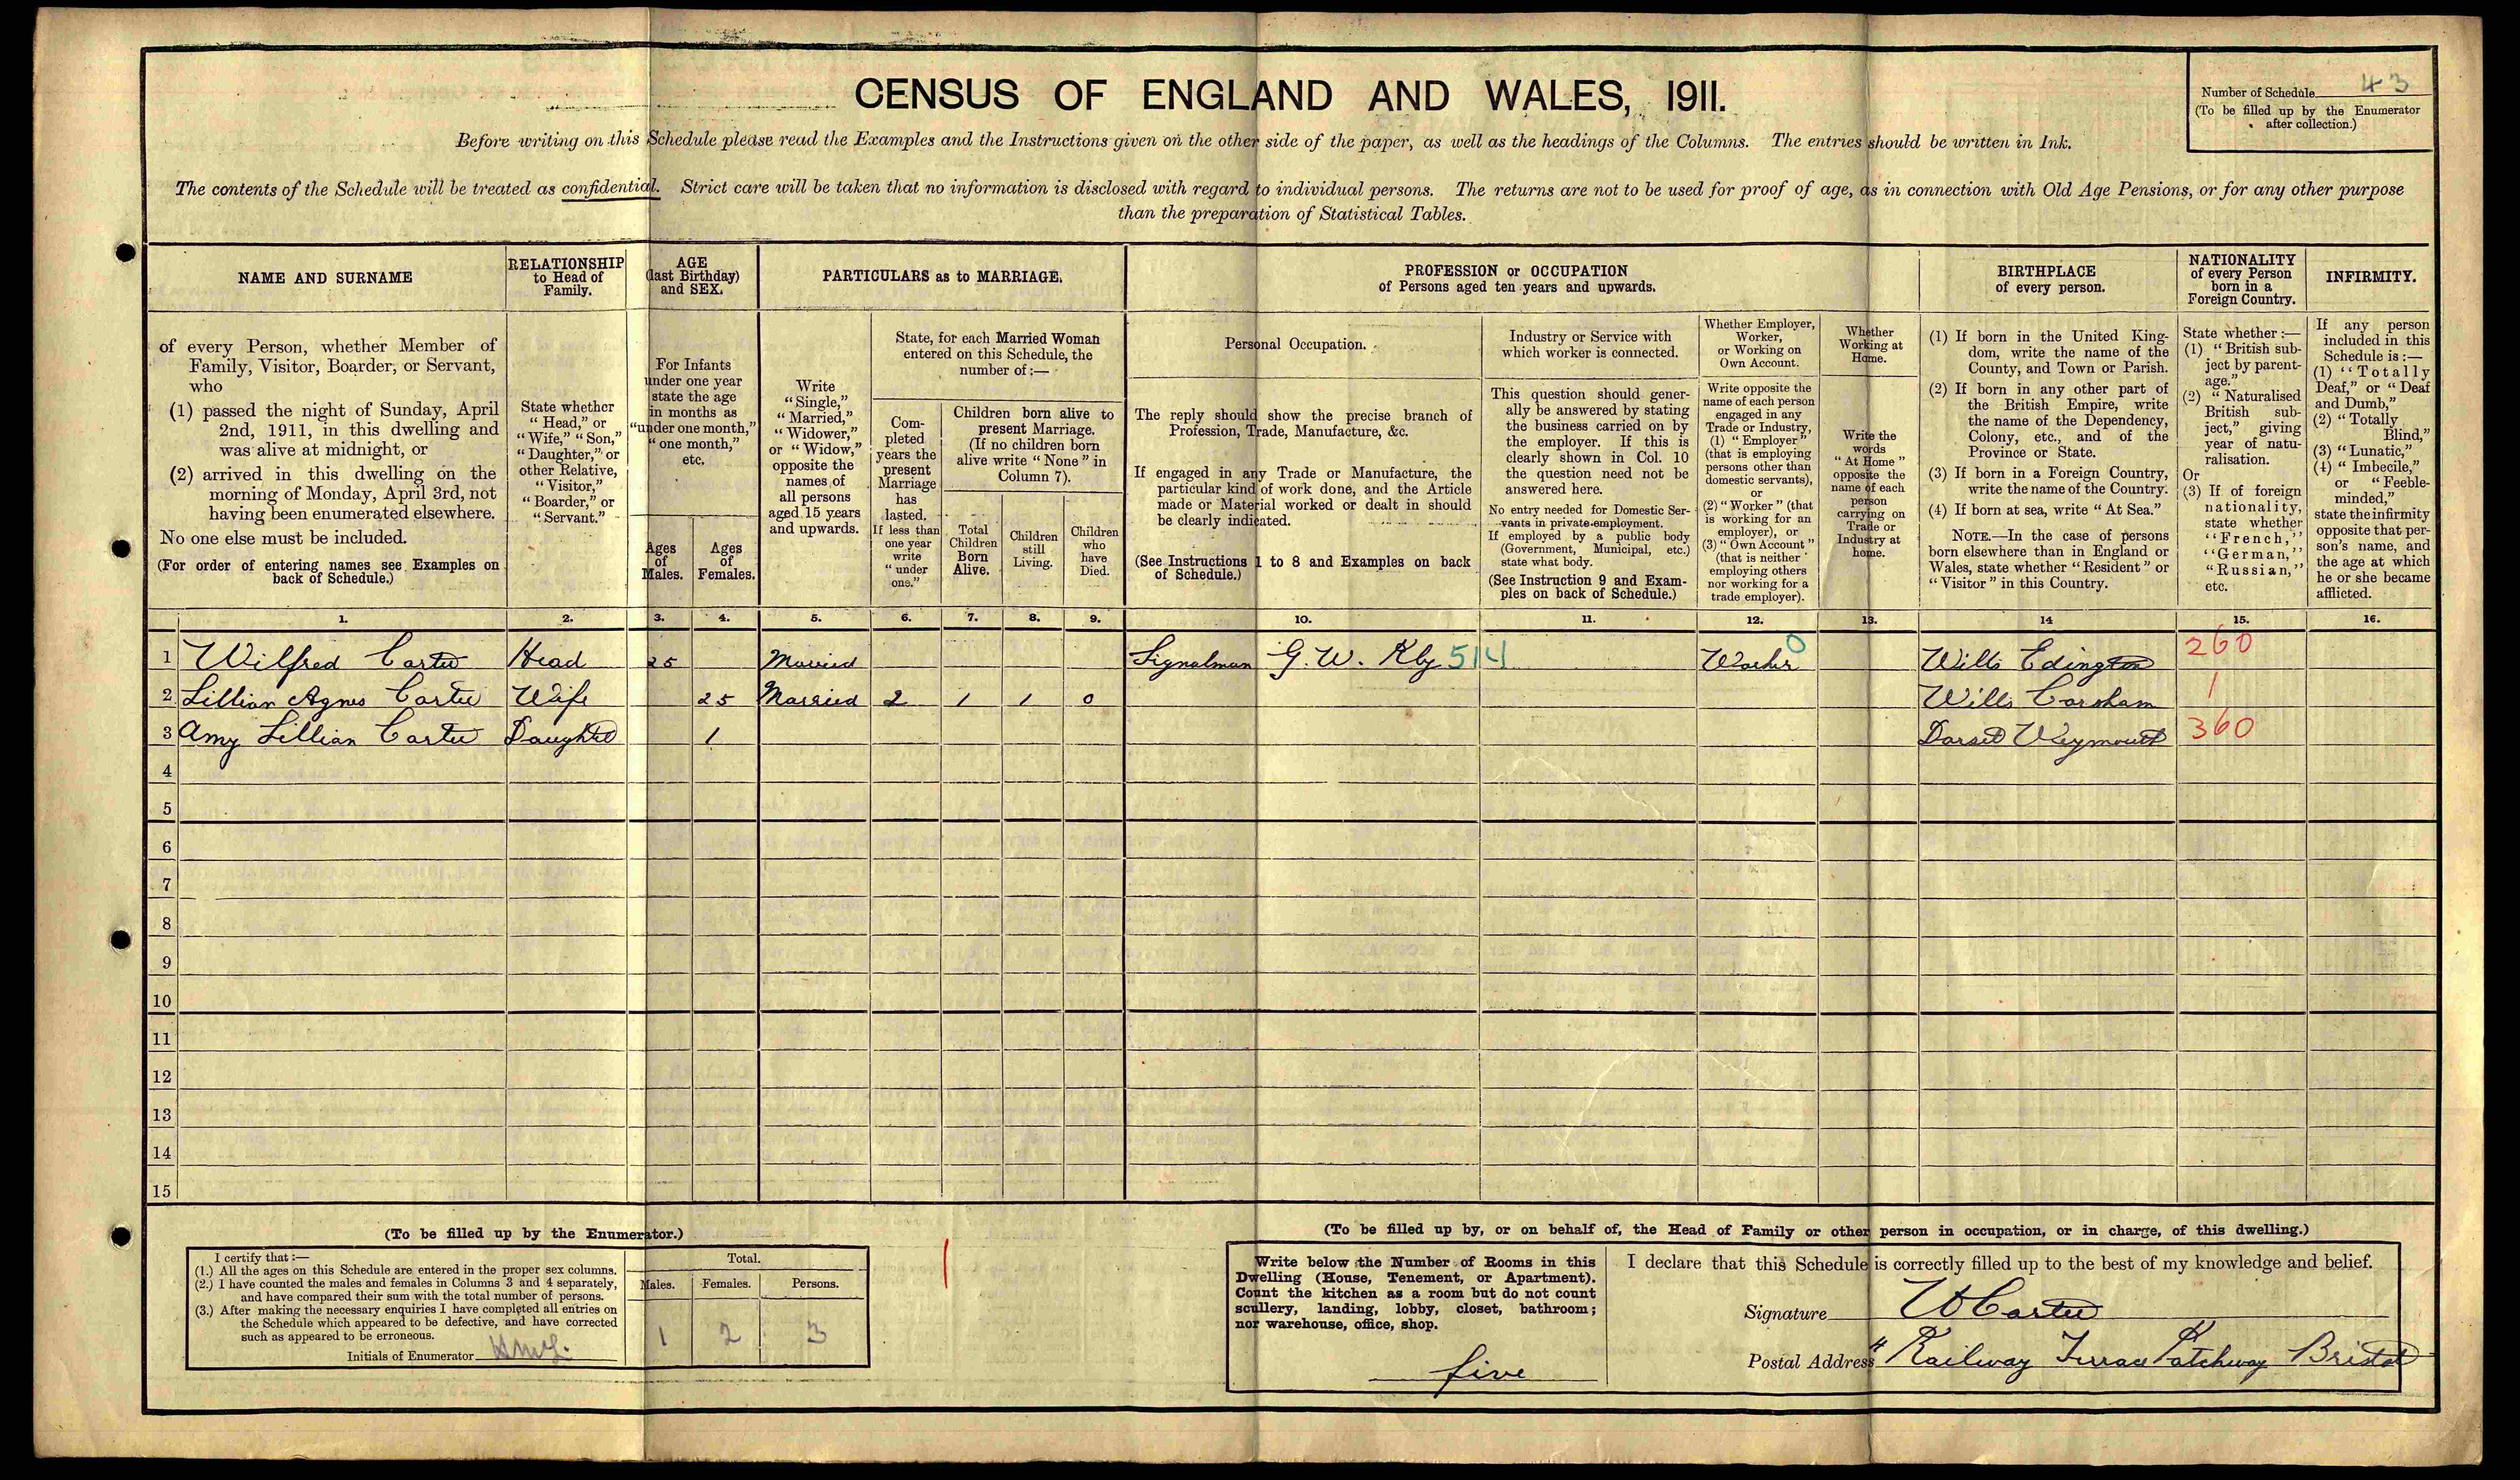 CENSUS OF ENGLAND AND WALES, 1911.
Number of Schedule 43
(To be filled up by the Enumerator
after collection.)
Before writing on this Schedule please read the Examples and the Instructions given on the other side of the paper, as well as the headings of the Columns. The entries should be written in Ink.
The contents of the Schedule will be treated as confidential. Strict care will be taken that no information is disclosed with regard to individual persons. The returns are not to be used for proof of age, as in connection with Old Age Pensions, or for any other purpose
than the preparation of Statistical Tables.
NAME AND SURNAME
of every Person, whether Member of
Family, Visitor, Boarder, or Servant,
who
(1) passed the night of Sunday, April
2nd, 1911, in this dwelling and
was alive at midnight, or
(2) arrived in this dwelling on the
morning of Monday, April 3rd, not
having been enumerated elsewhere.
No one else must be included.
(For order of entering names see Examples on
back of Schedule.)
RELATIONSHIP
to Head of
Family.
State whether
"Head," or
"Wife," "Son,"
"Daughter," or
other Relative,
"Visitor,"
"Boarder," or
"Servant."
AGE
(last Birthday)
and SEX.
For Infants
under one year
state the age
in months as
"under one month,"
"one month,"
etc.
Ages
of
Males.
Ages
of
Females.
PARTICULARS as to MARRIAGE.
Write
"Single,"
"Married,"
"Widower,"
or "Widow,"
opposite the
names of
all persons
aged 15 years
and upwards.
State, for each Married Woman
entered on this Schedule, the
number of:—
Com-
pleted
years the
present
Marriage
has
lasted.
If less than
one year
write
"under
one."
Children born alive to
present Marriage.
(If no children born
alive write "None" in
Column 7).
Total
Children
Born
Alive.
Children
still
Living.
Children
who
have
Died.
PROFESSION or OCCUPATION
of Persons aged ten years and upwards.
Personal Occupation.
The reply should show the precise branch of
Profession, Trade, Manufacture, &c.
If engaged in any Trade or Manufacture, the
particular kind of work done, and the Article
made or Material worked or dealt in should
be clearly indicated.
(See Instructions 1 to 8 and Examples on back
of Schedule.)
Industry or Service with
which worker is connected.
This question should gener-
ally be answered by stating
the business carried on by
the employer. If this is
clearly shown in Col. 10
the question need not be
answered here.
No entry needed for Domestic Ser-
vants in private employment.
If employed by a public body
(Government, Municipal, etc.)
state what body.
(See Instruction 9 and Exam-
ples on back of Schedule.)
Whether Employer,
Worker,
or Working on
Own Account.
Write opposite the
name of each person
engaged in any
Trade or Industry,
(1) "Employer"
(that is employing
persons other than
domestic servants),
or
(2) "Worker" (that
is working for an
employer), or
(3) "Own Account"
(that is neither
employing others
nor working for a
trade employer).
Whether
Working at
Home.
Write the
words
"At Home"
opposite the
name of each
person
carrying on
Trade or
Industry at
home.
BIRTHPLACE
of every person.
(1) If born in the United King-
dom, write the name of the
County, and Town or Parish.
(2) If born in any other part of
the British Empire, write
the name of the Dependency,
Colony, etc., and of the
Province or State.
(3) If born in a Foreign Country,
write the name of the Country.
(4) If born at sea, write "At Sea."
NOTE.—In the case of persons
born elsewhere than in England or
Wales, state whether "Resident" or
"Visitor" in this Country.
NATIONALITY
of every Person
born in a
Foreign Country.
State whether:—
(1) "British sub-
ject by parent-
age."
(2) "Naturalised
British sub-
ject," giving
year of natu-
ralisation.
Or
(3) If of foreign
nationality,
state whether
"French,"
"German,"
"Russian,"
etc.
INFIRMITY.
If any person
included in this
Schedule is:—
(1) "Totally
Deaf," or "Deaf
and Dumb,"
(2) "Totally
Blind,"
(3) "Lunatic,"
(4) "Imbecile,"
or "Feeble-
minded,"
state the infirmity
opposite that per-
son's name, and
the age at which
he or she became
afflicted.
1. 2. 3. 4. 5. 6. 7. 8. 9. 10. 11. 12. 13. 14 15. 16.
1 Wilfred Carter Head 25 Married Signalman G.W. Rly 514 Worker 0 Wilts Edington 260
2 Lillian Agnes Carter Wife 25 Married 2 1 1 0 Wilts Corsham 1
3 Amy Lillian Carter Daughter 1 Dorset Weymouth 360
4
5
6
7
8
9
10
11
12
13
14
15
(To be filled up by the Enumerator.)
I certify that:—
(1.) All the ages on this Schedule are entered in the proper sex columns.
(2.) I have counted the males and females in Columns 3 and 4 separately,
and have compared their sum with the total number of persons.
(3.) After making the necessary enquiries I have completed all entries on
the Schedule which appeared to be defective, and have corrected
such as appeared to be erroneous.
Initials of Enumerator
Total.
Males. Females. Persons.
1 2 3
(To be filled up by, or on behalf of, the Head of Family or other person in occupation, or in charge, of this dwelling.)
Write below the Number of Rooms in this
Dwelling (House, Tenement, or Apartment).
Count the kitchen as a room but do not count
scullery, landing, lobby, closet, bathroom;
nor warehouse, office, shop.
five
I declare that this Schedule is correctly filled up to the best of my knowledge and belief.
Signature W Carter
Postal Address 4 Railway Terrace Patchway Bristol